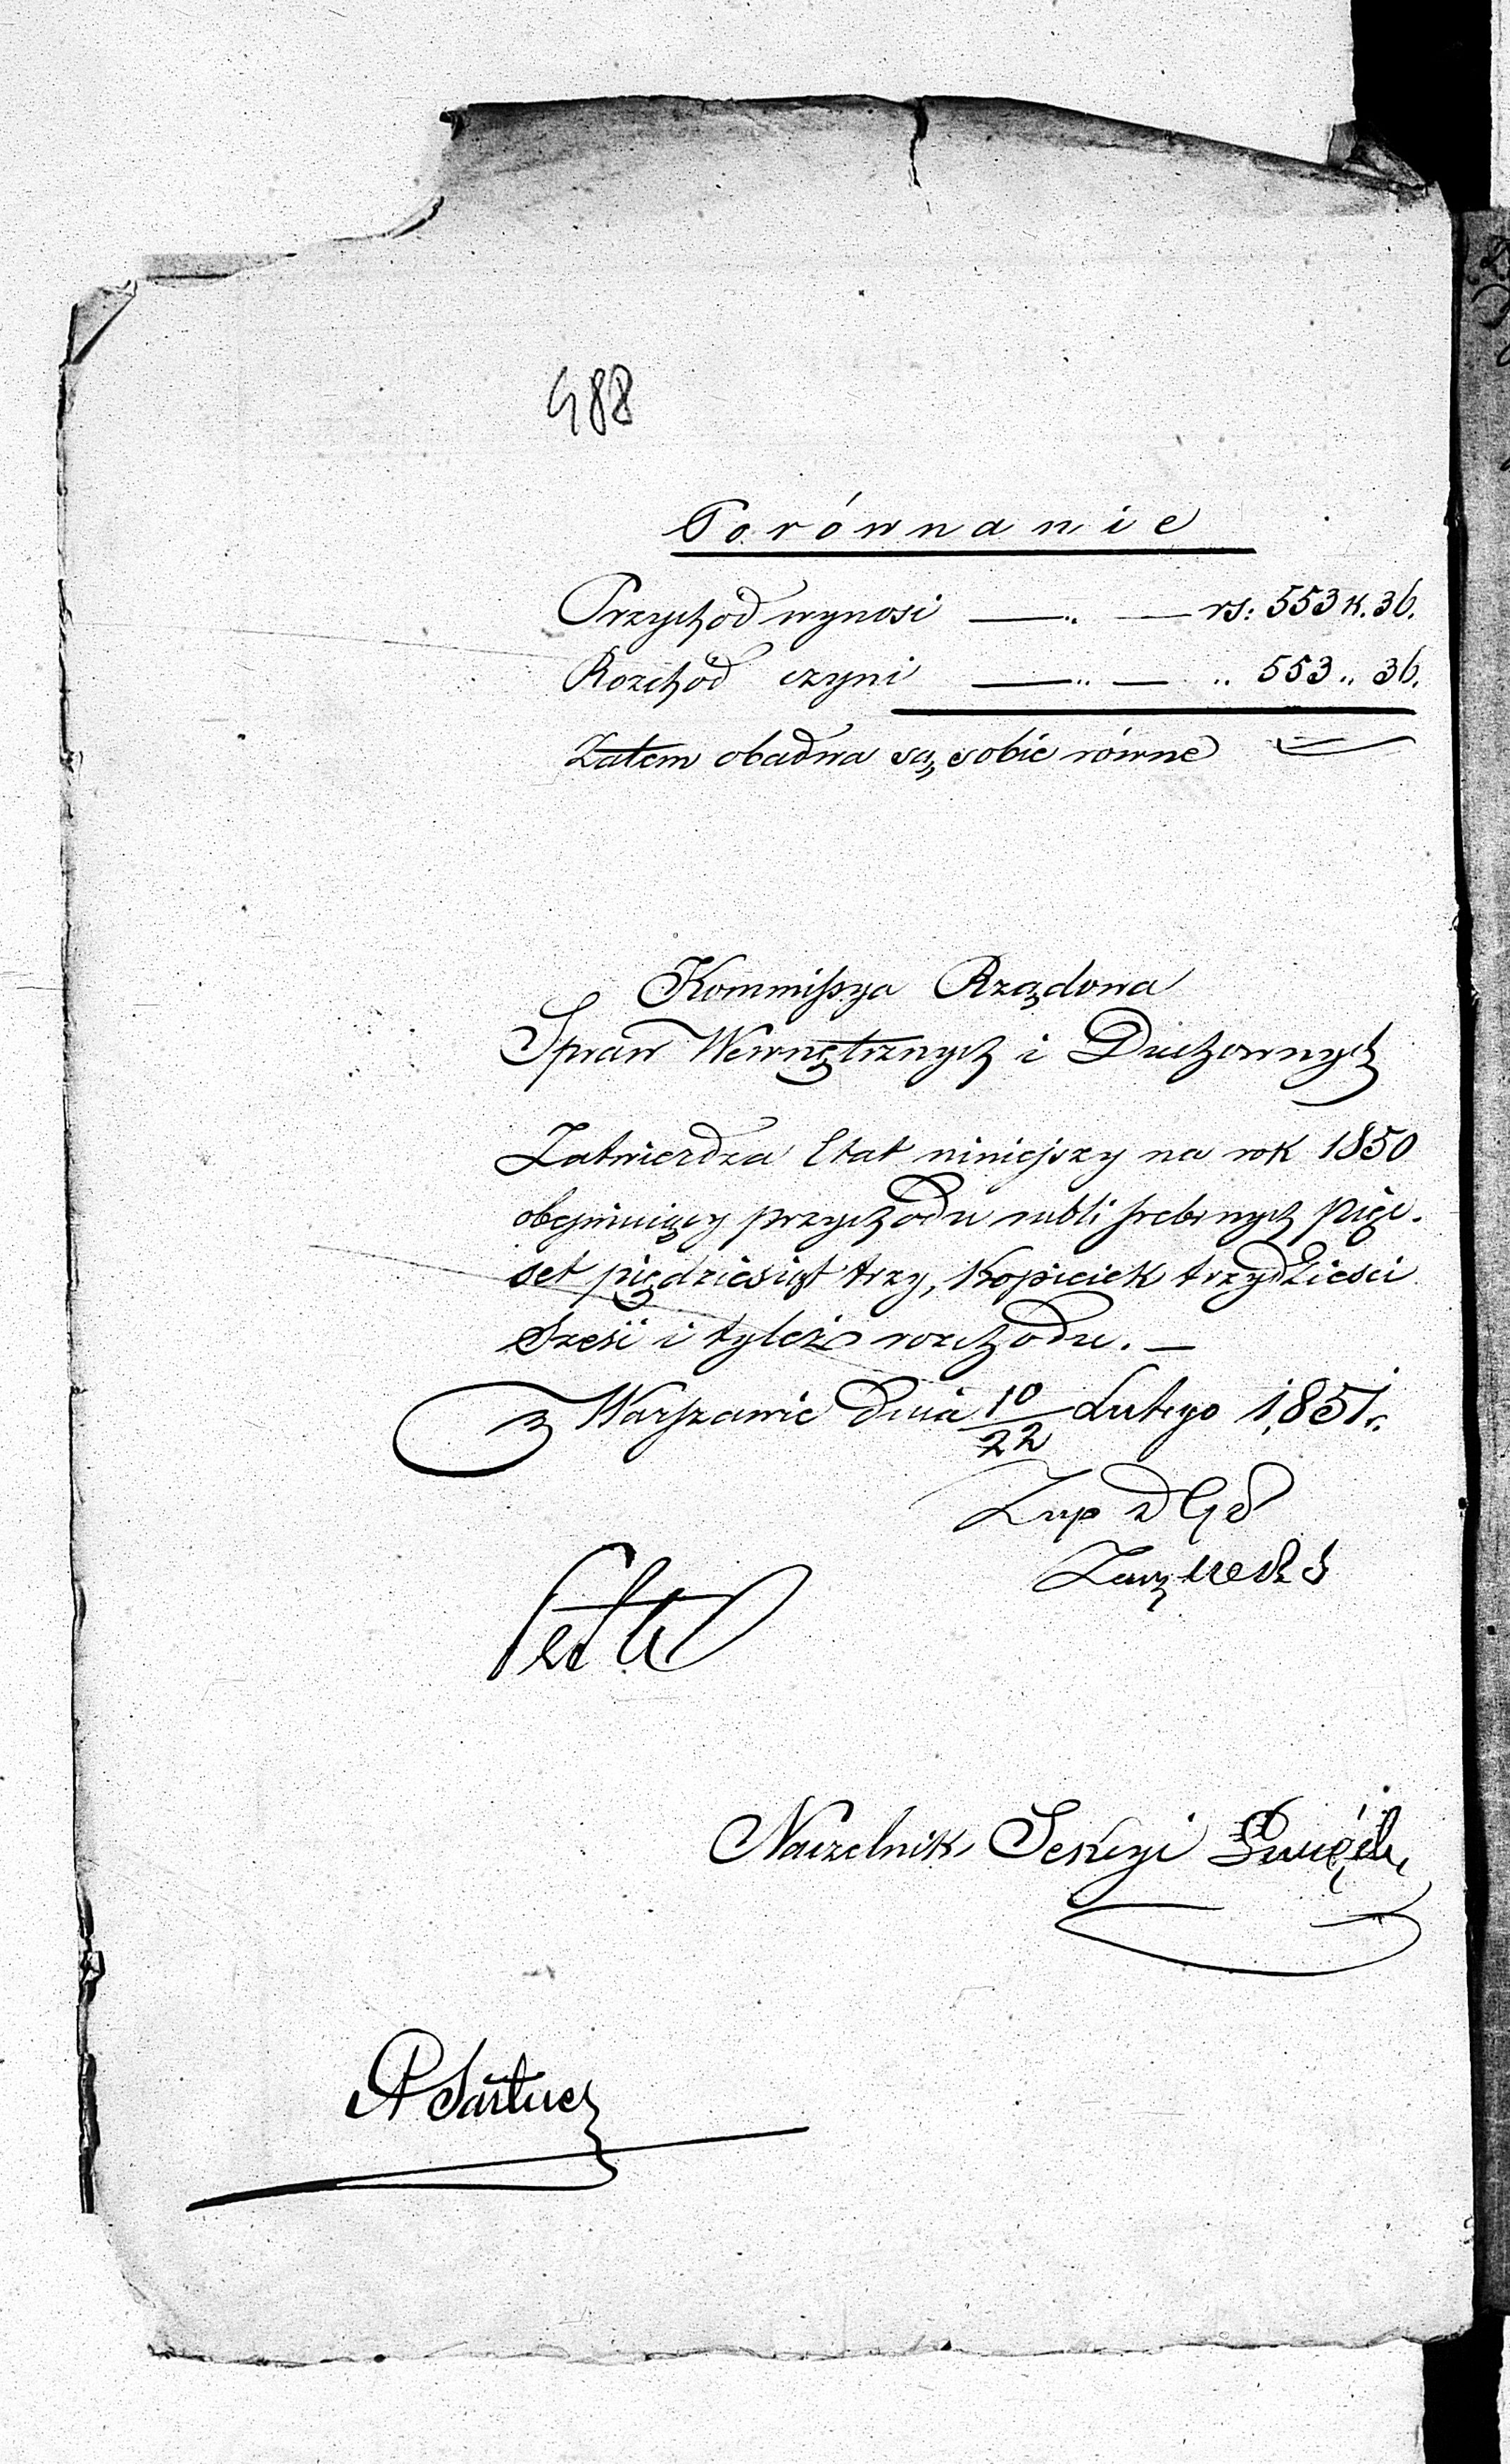 488
Porównanie
Przychod wynosi —„ — rs: 553 k. 36.
Rozchod czyni —„ — „ 553 „ 36.
Zatem obadwa są sobie równe
Kommissya Rządowa
Spraw Wewnętrznych i Duchownych
Zatwierdza Etat niniejszy na rok 1850
obejmuiący przychodu rubli srebrnych pięc-
set pięcdziesiąt trzy, kopieiek trzydzieści
sześć i tyleż rozchodu. —
w Warszawie dnia 10/22 Lutego 1851 r.
Naczelnik Sekcyi